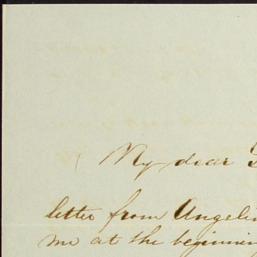 My dear
letter from Angelin
me at the beginnin